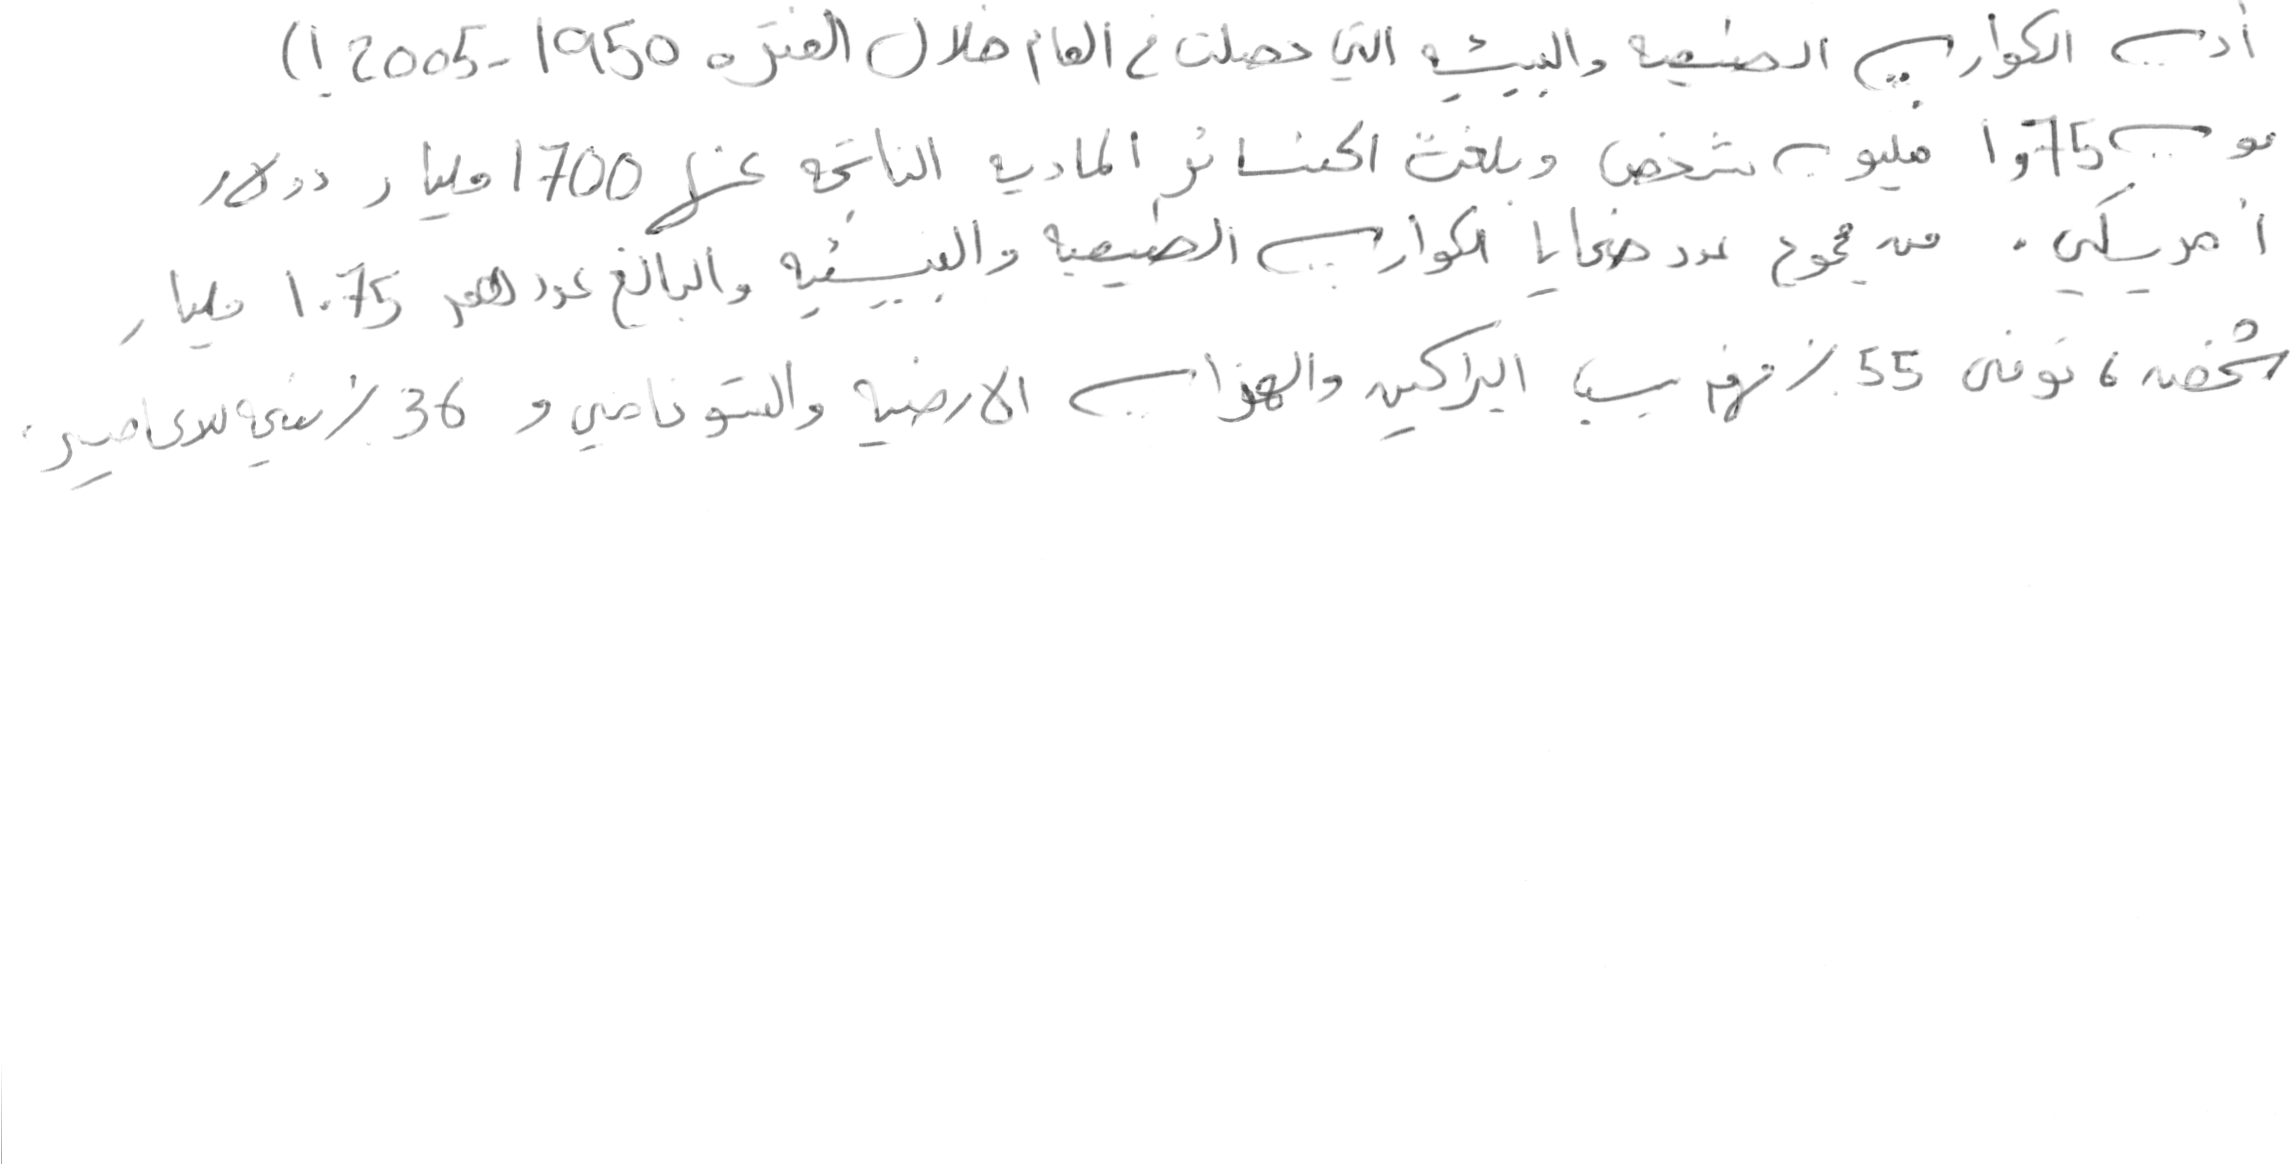 أدت الكوارث الطبيعيه والبيئيه التي حصلت في العام خلال الفتره 1950-2005 إلى
موت 1,75 مليون شخص وبلغت الخسائر الماديه الناتجه عنها 1700 مليار دولار
أمريكي. من مجموع عدد ضحايا الكوارث الطبيعيه والبيئيه والبالغ عددهم 1.75 مليار
شخص، توفى 55% منهم بسبب البراكين والهزات الارضيه والتسونامي و 36% نتيجه للاعاصير.